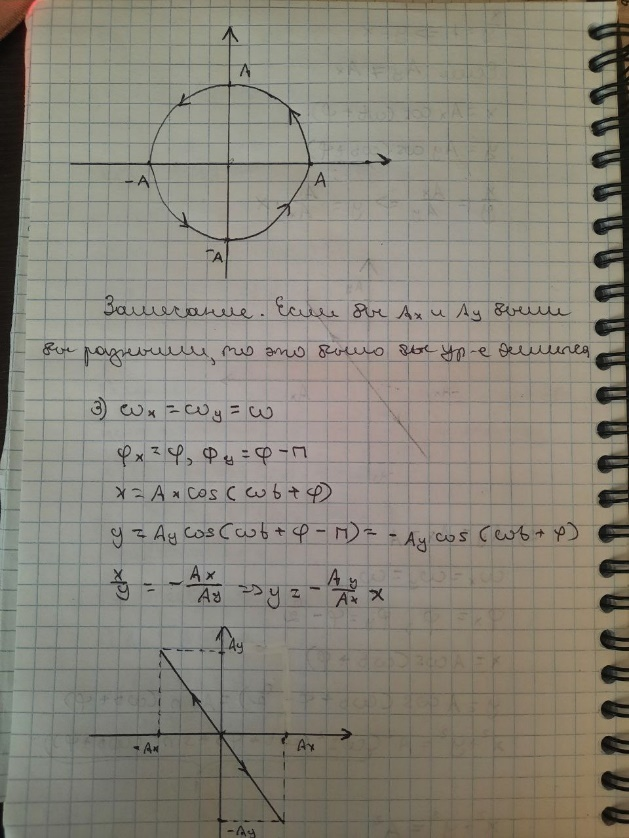 A
-A
A
-A
Замечание. Если бы Ax и Ay были
бы разными, то это было бы ур-е эллипса
3) ωx = ωy = ω
φx = φ, φy = φ - π
x = Ax cos(ωt + φ)
y = Ay cos(ωt + φ - π) = - Ay cos(ωt + φ)
x/y = - Ax/Ay => y = - Ay/Ax x
Ay
-Ax
Ax
-Ay